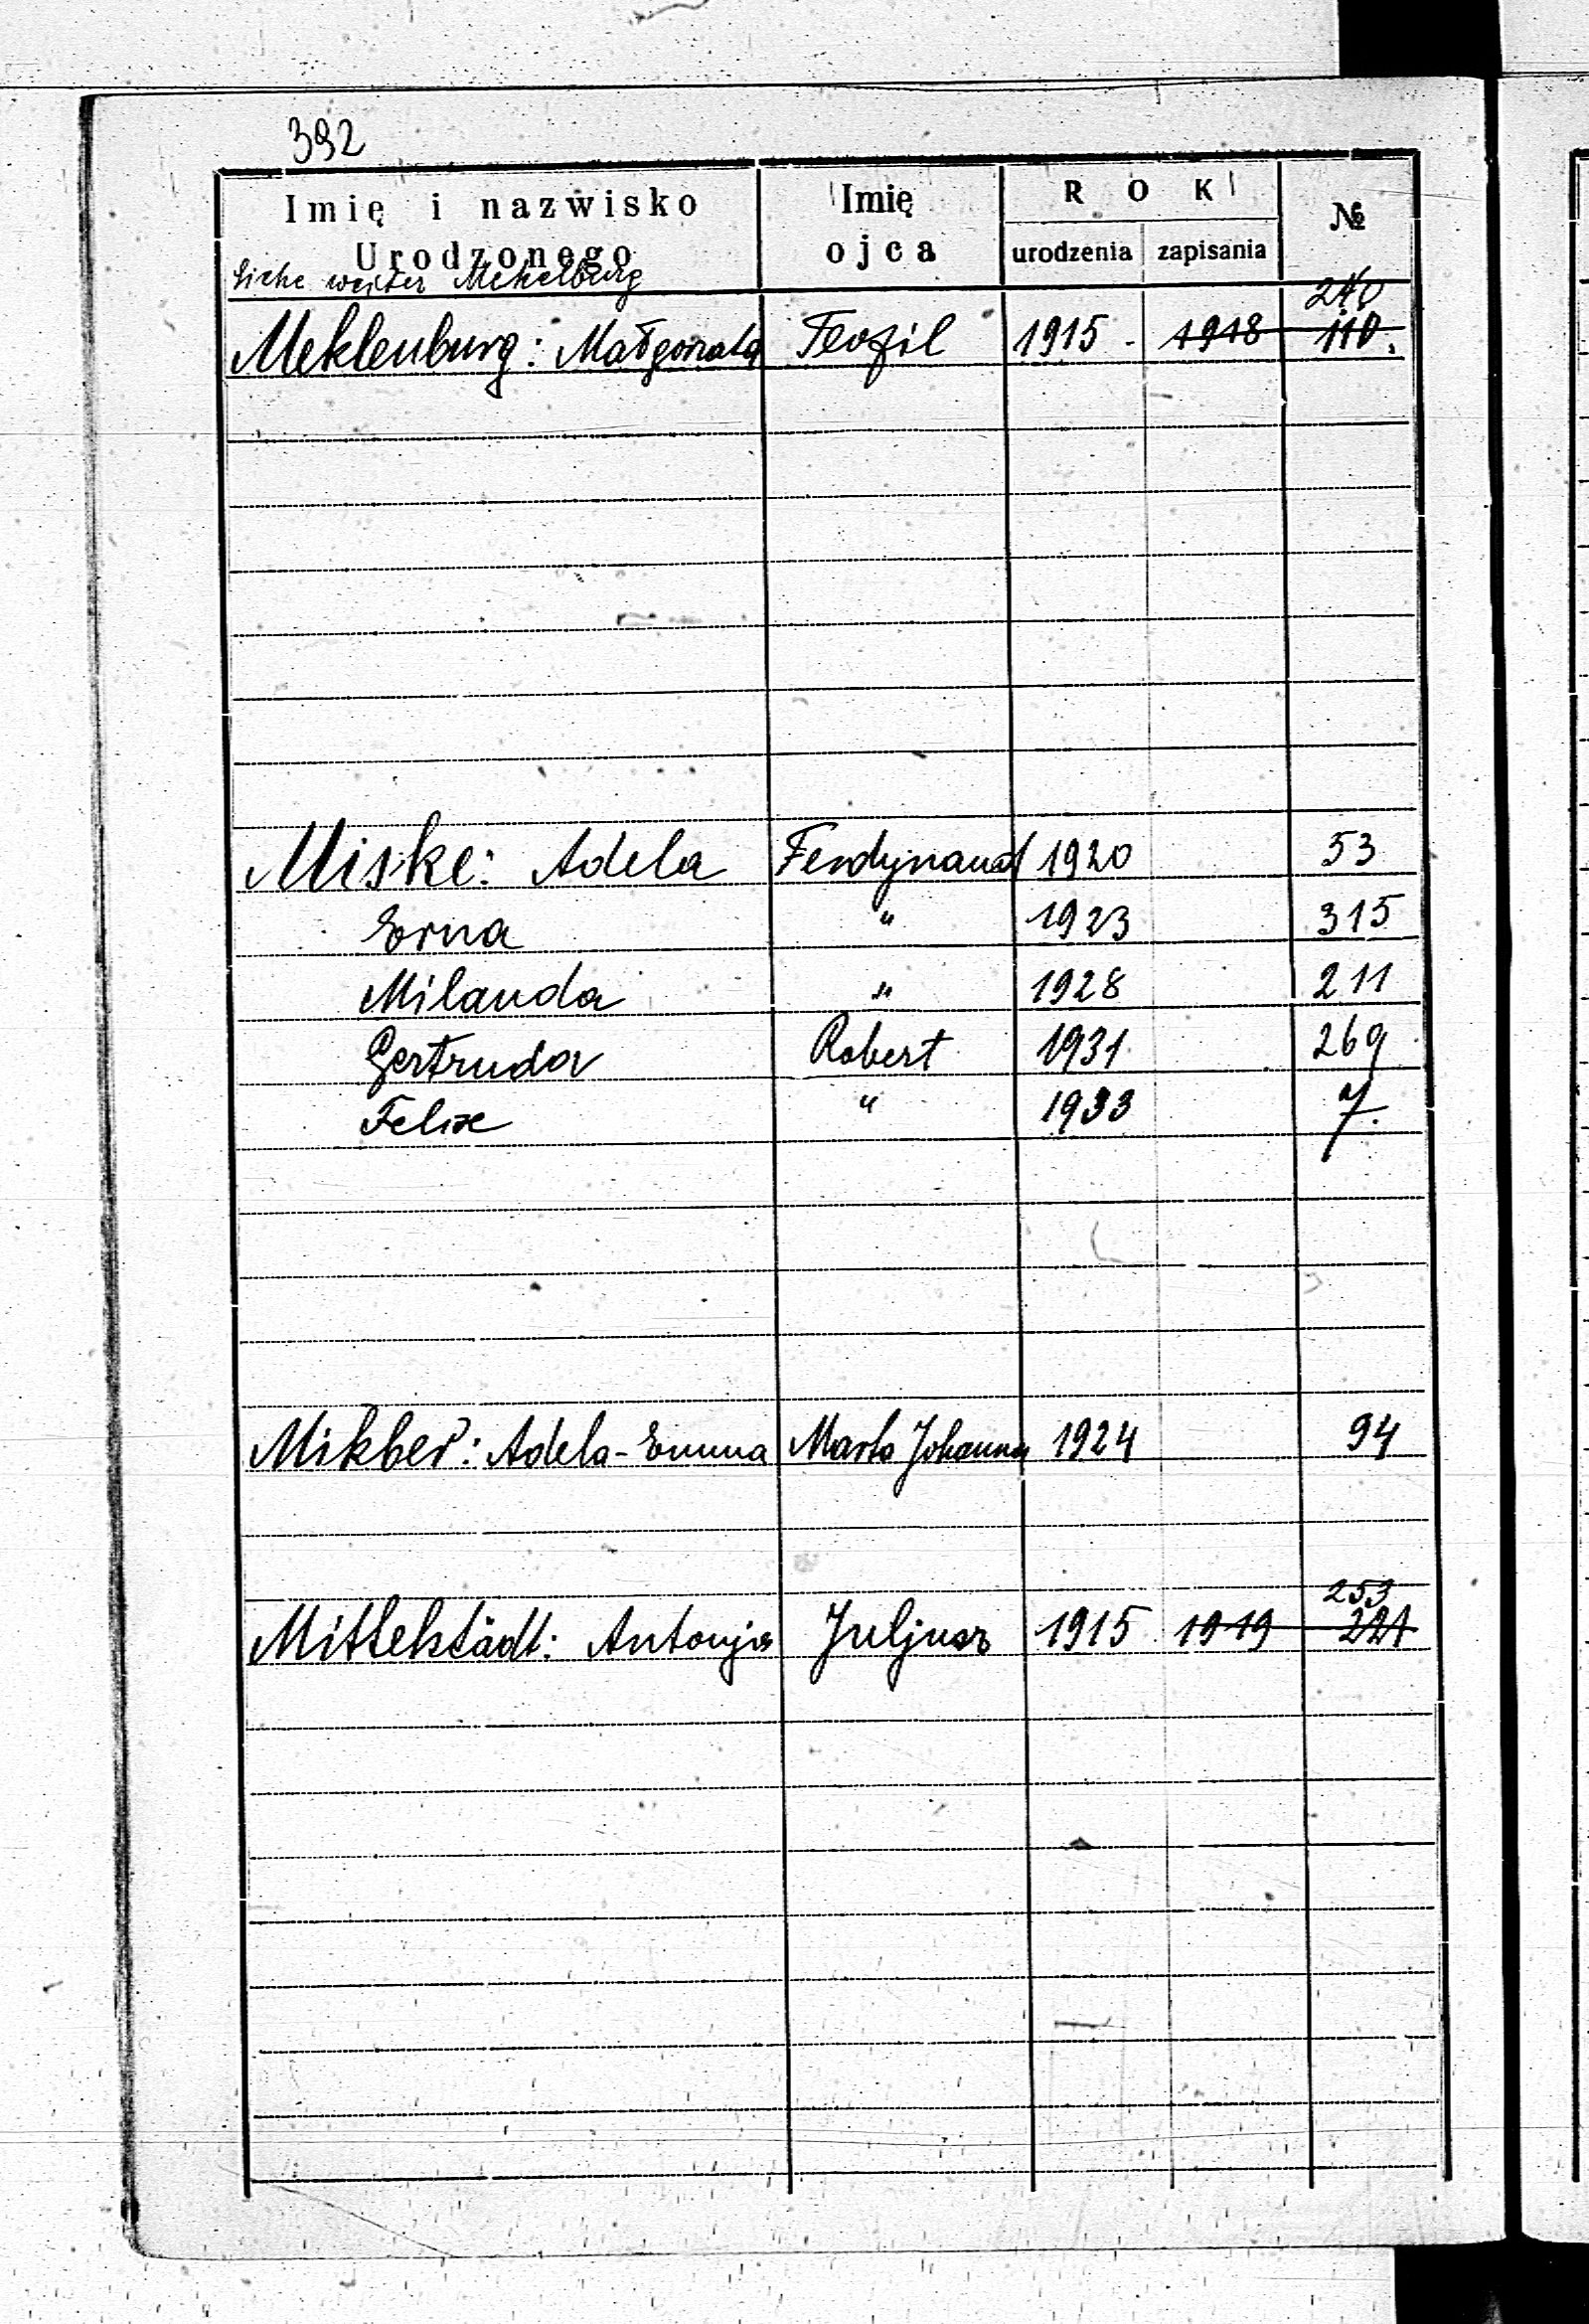 392
Imię i nazwisko Urodzonego Imię ojca ROK urodzenia zapisania №
Siehe weiter Mekelburg
240
Meklenburg: Małgorzata Teofil 1915 - 1918 110.
Miske: Adela Ferdynand 1920 53
Erna " 1923 315
Milanda " 1928 211
Gertruda Robert 1931 269
Felix " 1933 7.
Mikber: Adela-Emma Marta Johanna 1924 94
253
Mittelstädt: Antonja Juljusz 1915 1919 221